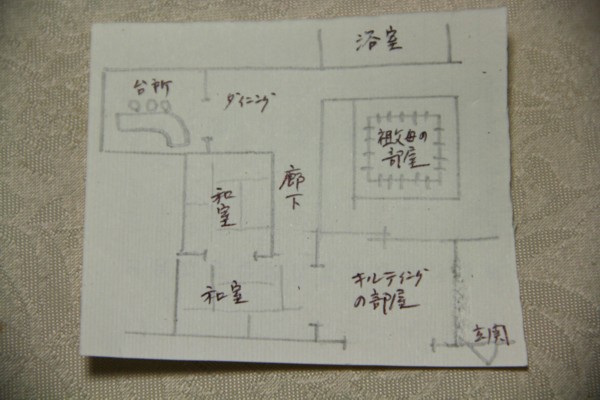 浴室
台所
ダイニング
祖父母の
部屋
廊
下
和室
和室
キルティング
の部屋
玄関